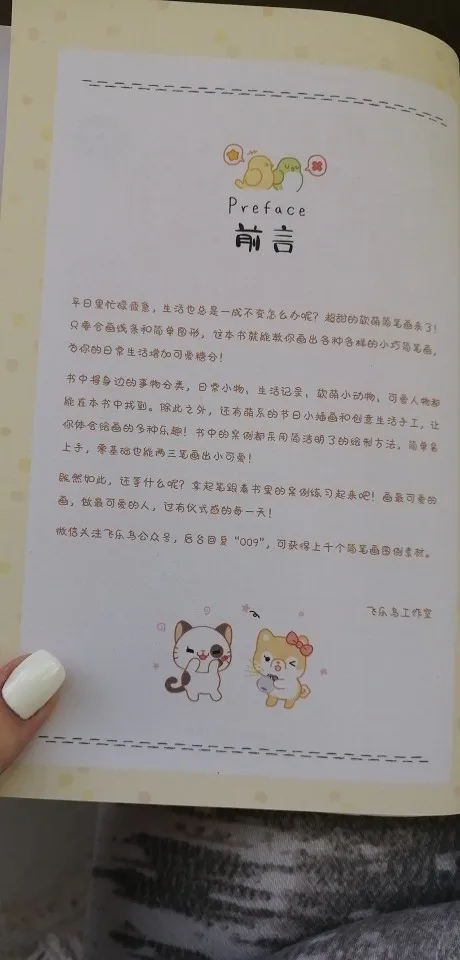 Preface
前言
平日里忙碌疲惫，生活也总是一成不变怎么办呢？超甜的软萌简笔画来了！
只要会画线条和简单图形，这本书就能教你画出各种各样的小巧简笔画，
为你的日常生活增加可爱糖分！
书中将身边的事物分类，日常小物、生活记录、软萌小动物、可爱人物都
能在本书中找到。除此之外，还有萌系的节日小插画和创意生活手工，让
你体会绘画的多种乐趣！书中的案例都采用简洁明了的绘制方法，简单易
上手，零基础也能两三笔画出小可爱！
既然如此，还等什么呢？拿起笔跟着书里的案例练习起来吧！画最可爱的
画，做最可爱的人，过有仪式感的每一天！
微信关注飞乐鸟公众号，后台回复“009”，可获得上千个简笔画图例素材。
飞乐鸟工作室